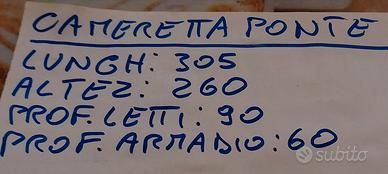 CAMERETTA PONTE
LUNGH: 305
ALTEZ: 260
PROF. LETTI: 90
PROF. ARMADIO: 60
subito